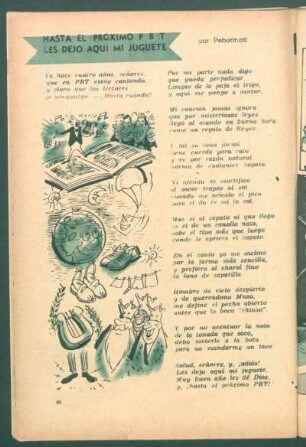 HASTA EL PROXIMO P B T
LES DEJO AQUI MI JUGUETE
por Pebotinoé
Ya hace cuatro años, señores,
que en PBT estoy cantando,
y claro que los lectores
se preguntan —¿Hasta cuándo?
Por mi parte nada digo
que pueda perjudicar.
Limpio de la paja el trigo,
y aquí me pongo a contar.
Mi canción jamás ignora
que por misteriosas leyes
llegó al mundo en buena hora
como un regalo de Reyes.
Y tal su tono jovial
tiene cuerda para rato
y es por razón natural
horma de cualquier zapato.
Ni ajenda ni mortifica
al sacar trapos al sol
cuando me señala el pico
para el do re mi fa sol.
Mas si al zapato al que llega
es el de un canalla nato,
sabe el tipo más que juega
dónde le aprieta el zapato.
En el canto yo me inclino
por la forma más sencilla,
y prefiero al charol fino
la lona de zapatilla.
Hombre de cielo despierto
y de querendona Musa,
me define el pecho abierto
antes que la boca "chiusa"
Y por no acentuar la nota
de lo canalla que toco,
debo meterle a la bota
para no mandarme un toco.
Salud, señores, y, ¡adiós!
Les dejo aquí mi juguete.
Muy buen año les dé Dios,
y, ¡hasta el próximo PBT!